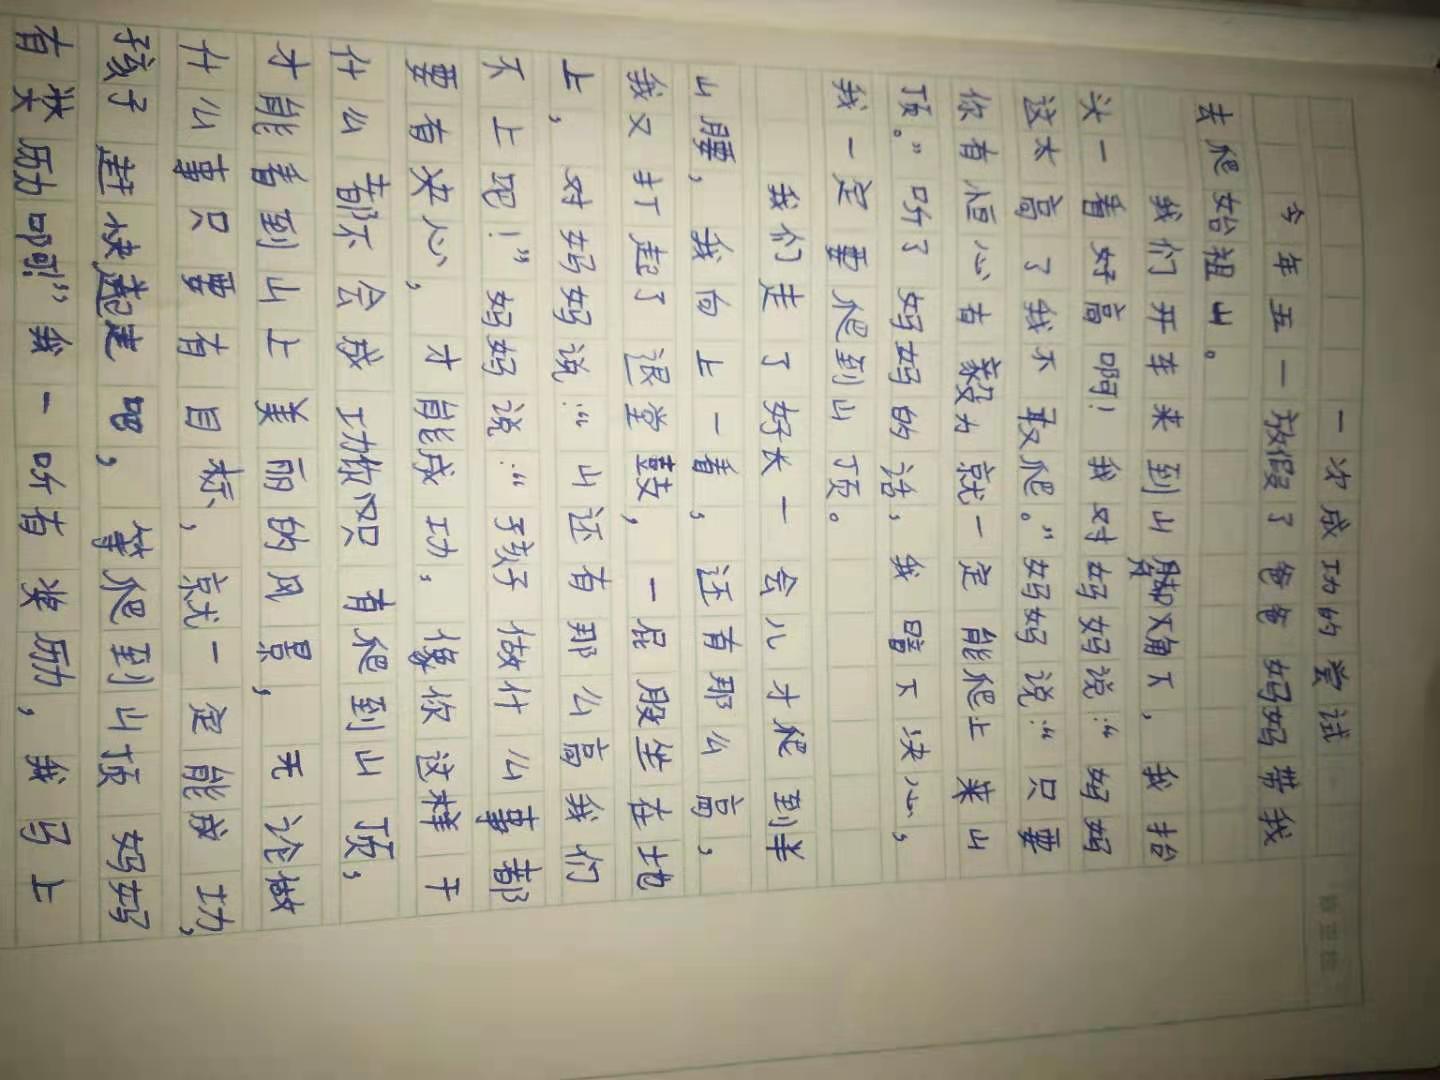 一次成功的尝试
今年五一放假了爸爸妈妈带我
去爬始祖山。
我们开车来到山脚下，我抬
头一看好高啊！我对妈妈说：“妈妈
这太高了我不敢爬。”妈妈说：“只要
你有恒心有毅力就一定能爬上来山
顶。”听了妈妈的话，我暗下决心，
我一定要爬到山顶。
我们走了好长一会儿才爬到半
山腰，我向上一看，还有那么高，
我又打起了退堂鼓，一屁股坐在地
上，对妈妈说：“山还有那么高我们
不上吧！”妈妈说：“孩子做什么事都
要有决心，才能成功，像你这样干
什么都不会成功你只有爬到山顶，
才能看到山上美丽的风景，无论做
什么事只要有目标，就一定能成功，
孩子赶快起走吧，等爬到山顶妈妈
有奖励啊！”我一听有奖励，我马上